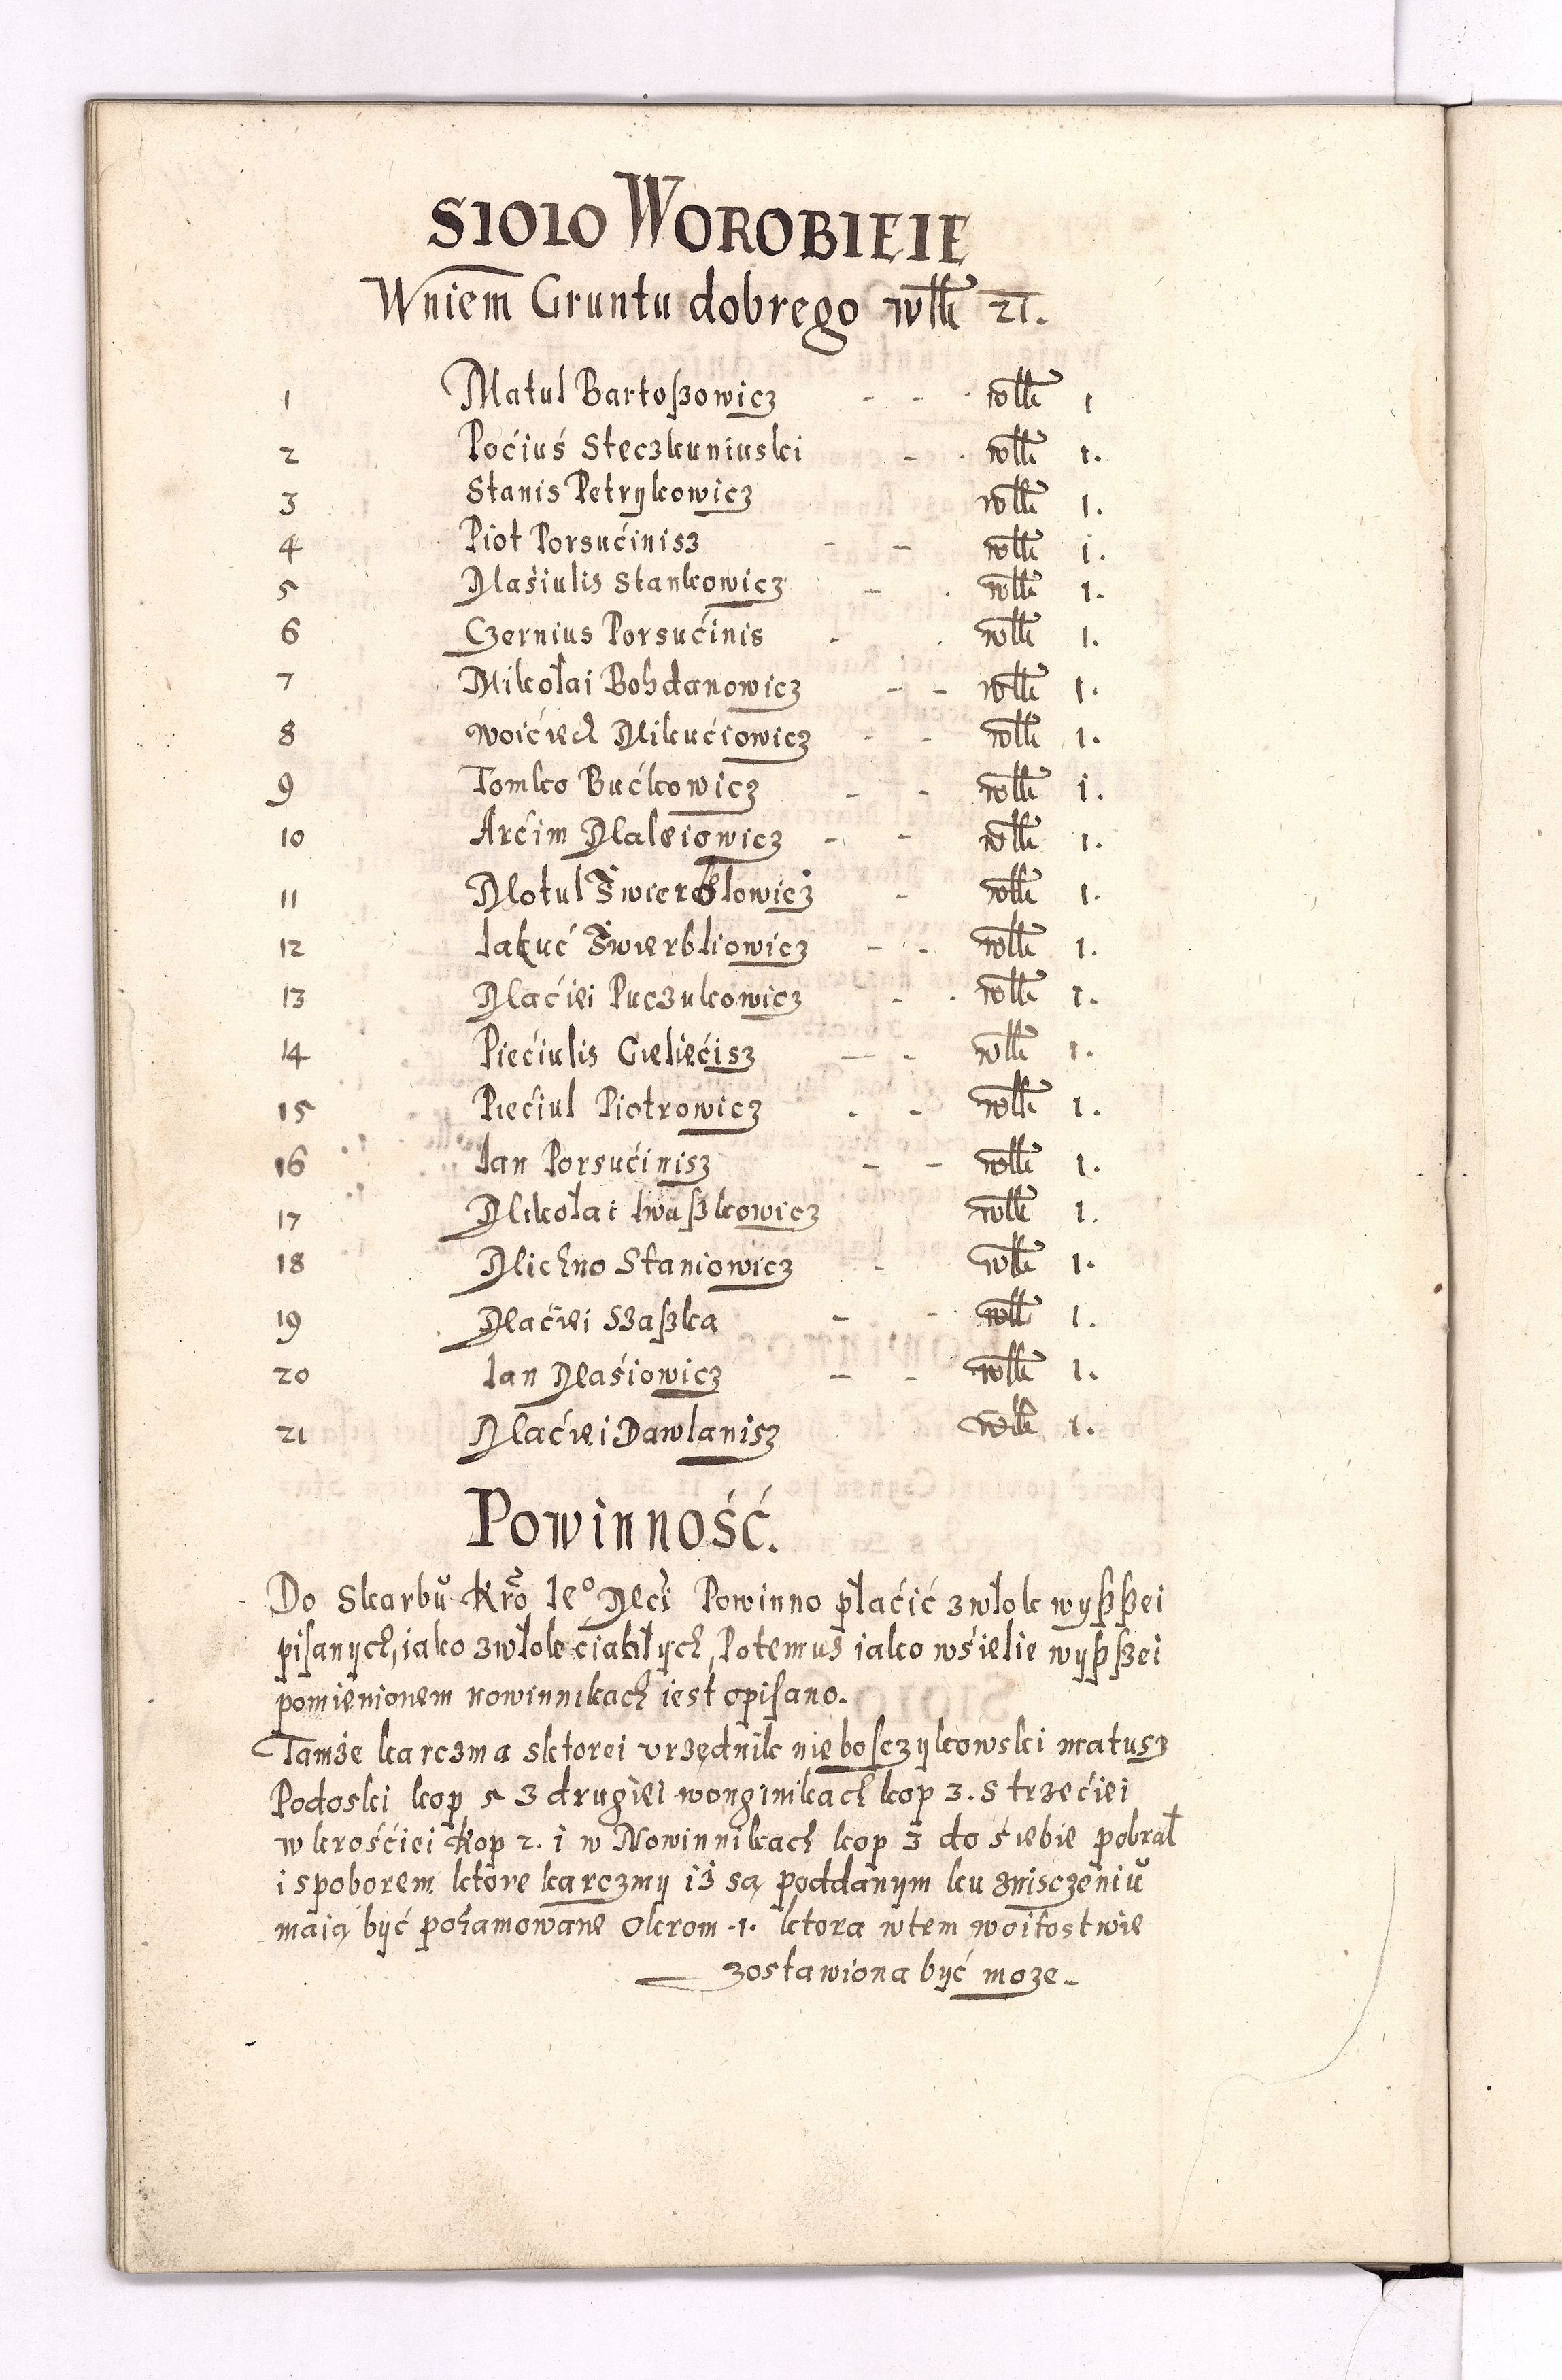 SIOLO WOROBIEIE
Wniem Gruntu dobrego włk 21.
1 Matul Bartoßowicz - - włk 1
2 Poćiuś Steczkuniuski - włk 1.
3 Stanis Petrykowicz włk 1.
4 Piot Porsućinisz - - włk 1.
5 Maśiulis Stankowicz - włk 1.
6 Czernius Porsućinis - włk 1.
7 Mikołai Bohdanowicz - - włk 1.
8 Woićiech Mikućiowicz - - włk 1.
9 Tomko Bućkowicz - - włk 1.
10 Arćim Maleiowicz - - włk 1.
11 Motul Swierblowicz - włk 1.
12 Iakuć Swierbliowicz - - włk 1.
13 Maćiei Puczukowicz - włk 1.
14 Piećiulis Gieliećisz - - włk 1.
15 Piećiul Piotrowicz - włk 1.
16 Ian Porsućinisz - - włk 1.
17 Mikołai Iwaßkowicz włk 1.
18 Michno Staniowicz - włk 1.
19 Maćiei Szaßka - - włk 1.
20 Ian Maśiowicz - - włk 1.
21 Maćiei Dawlanisz włk 1.
Powinność.
Do Skarbŭ Kro Ie° Mći Powinno płaćić zwłok wyßßei
pisanych, iako zwłok ćiahłych, Potemuś iako wśielie wyßßei
pomienionem nowinnikach iest opisano.
Tamże karczma sktorei vrzędnik nieboszczykowski matusz
Podoski kop 5 z drugiei wonginikach kop 3. S trzećiei
w krośćiei kop 2. i w Nowinnikach kop 3 do śiebie pobrał
i spoborem ktore karczmy iż są poddanym ku zniszczeniŭ
maią być pohamowane Okrom .1. ktora wtem woitostwie
zostawiona być może_